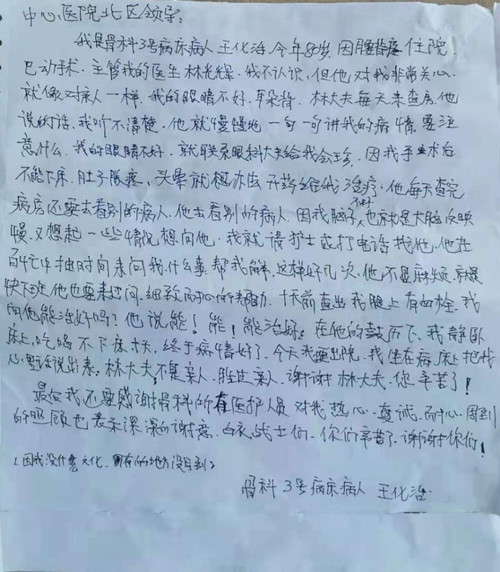 中心医院北区领导:
我是骨科3号病床病人王化治,今年80岁,因腰指疼住院,
已动手术.主管我的医生林光辉,我不认识,但他对我非常关心.
就像对亲人一样,我的眼睛不好,耳朵背,林大夫每天来查房,他
说的话,我听不清楚,他就慢慢地一句一句讲我的病情要注
意什么.我的眼睛不好,就联系眼科大夫给我会诊,因我手术后
不能下床,肚子胀疼、头晕就想办法开药给我治疗,他每天查完
病房还要去看别的病人,他去看别的病人,因我脑子不好,也就是大脑反映
慢,又想起一些情况想问他,我就请护士或打电话找他,他在
百忙中抽时间来问我,什么事帮我解,这样好几次,他不是麻烦,就是
快下班他也要来过问,细致而耐心的帮助.十天前查出我腿上有血栓,我
问他能治好吗?他说能!能!能治好.在他的鼓历下,我静卧
床上,吃喝不下床 天,终于病情好了.今天我要出院,我坐在病床上把我
心 话说出来,林大夫,不是亲人,胜过亲人,谢谢林大夫,您辛苦了!
最后我还要感谢骨科所有医护人员对我热心、真诚、耐心、周到
的照顾也表示深深的谢意.白衣战士们,你们辛苦了,谢谢你们!
(因我没什么文化,有的地方没写到)
骨科3号病床病人 王化治.